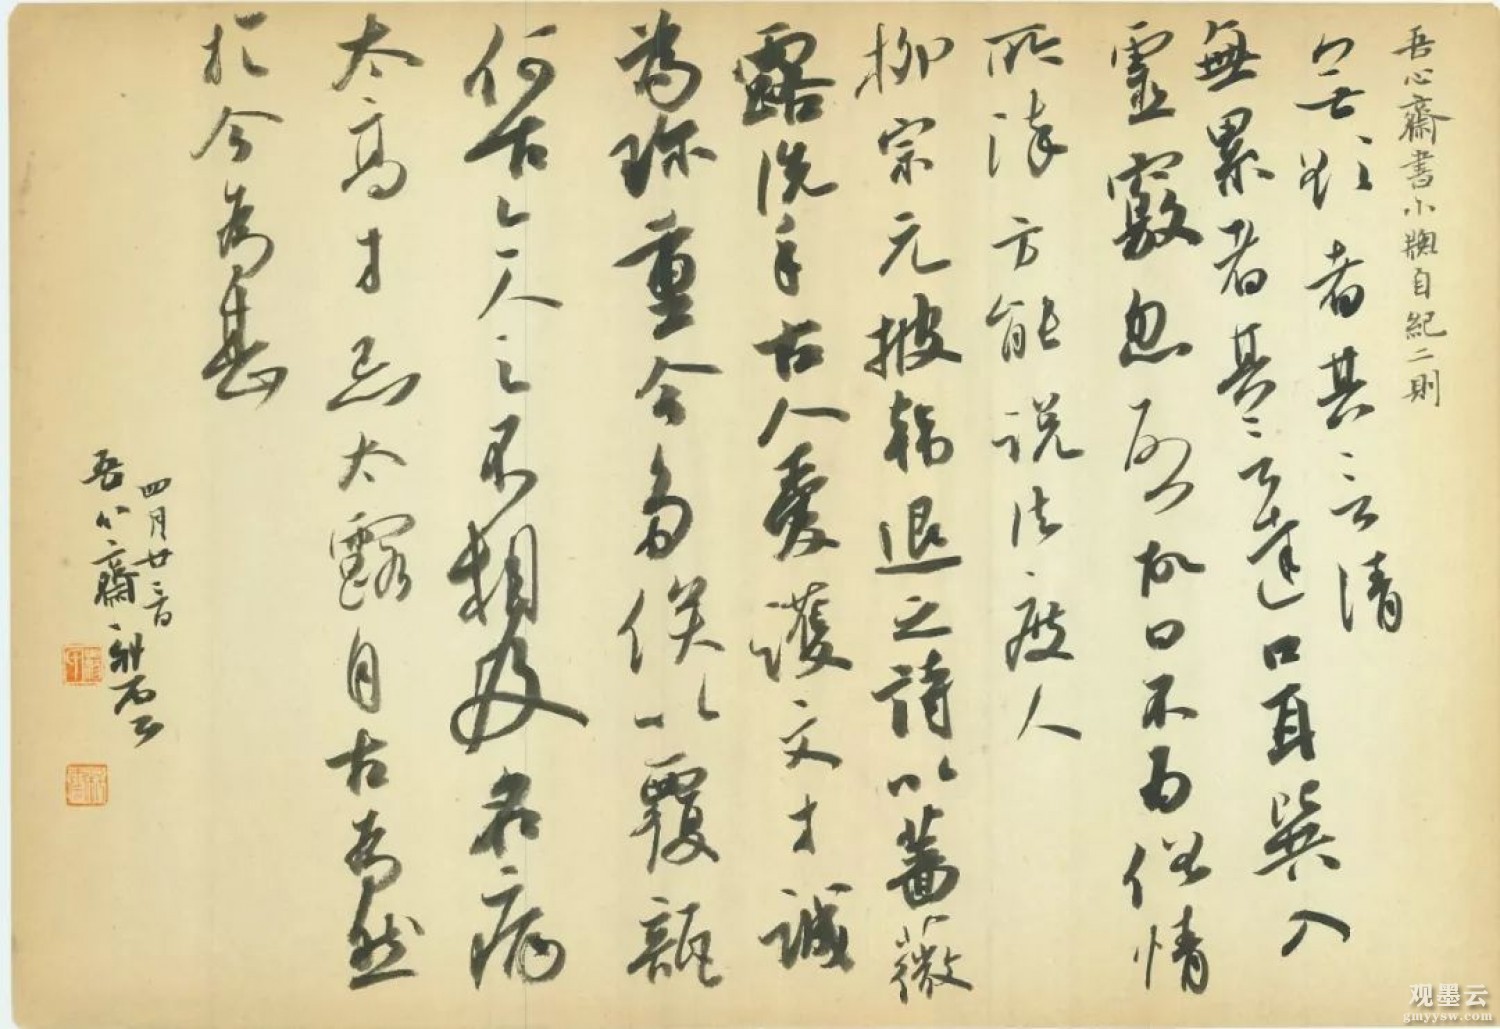 吾心齋書小牘自紀二則
無欲者其言清
無累者其言達口耳巽入
靈竅忽啟故曰不為俗情
所染方能說法度人
柳宗元披韓退之詩以薔薇
露洗手古人愛護文才誠
為珍重今多俟以覆瓿
何古今人之不相及名病
太高才忌太露自古為然
於今為甚
四月廿三日
吾心齋
观墨云
gmyysw.com